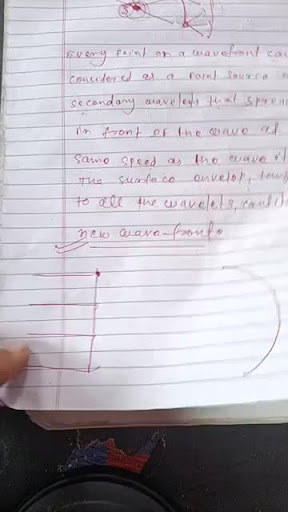 Every point on a wavefront can
considered as a point source
secondary wavelets that sprea
in front of the wave at
same speed as the wave it
The surface envelop, tan
to all the wavelets, consti
new wave-fronts